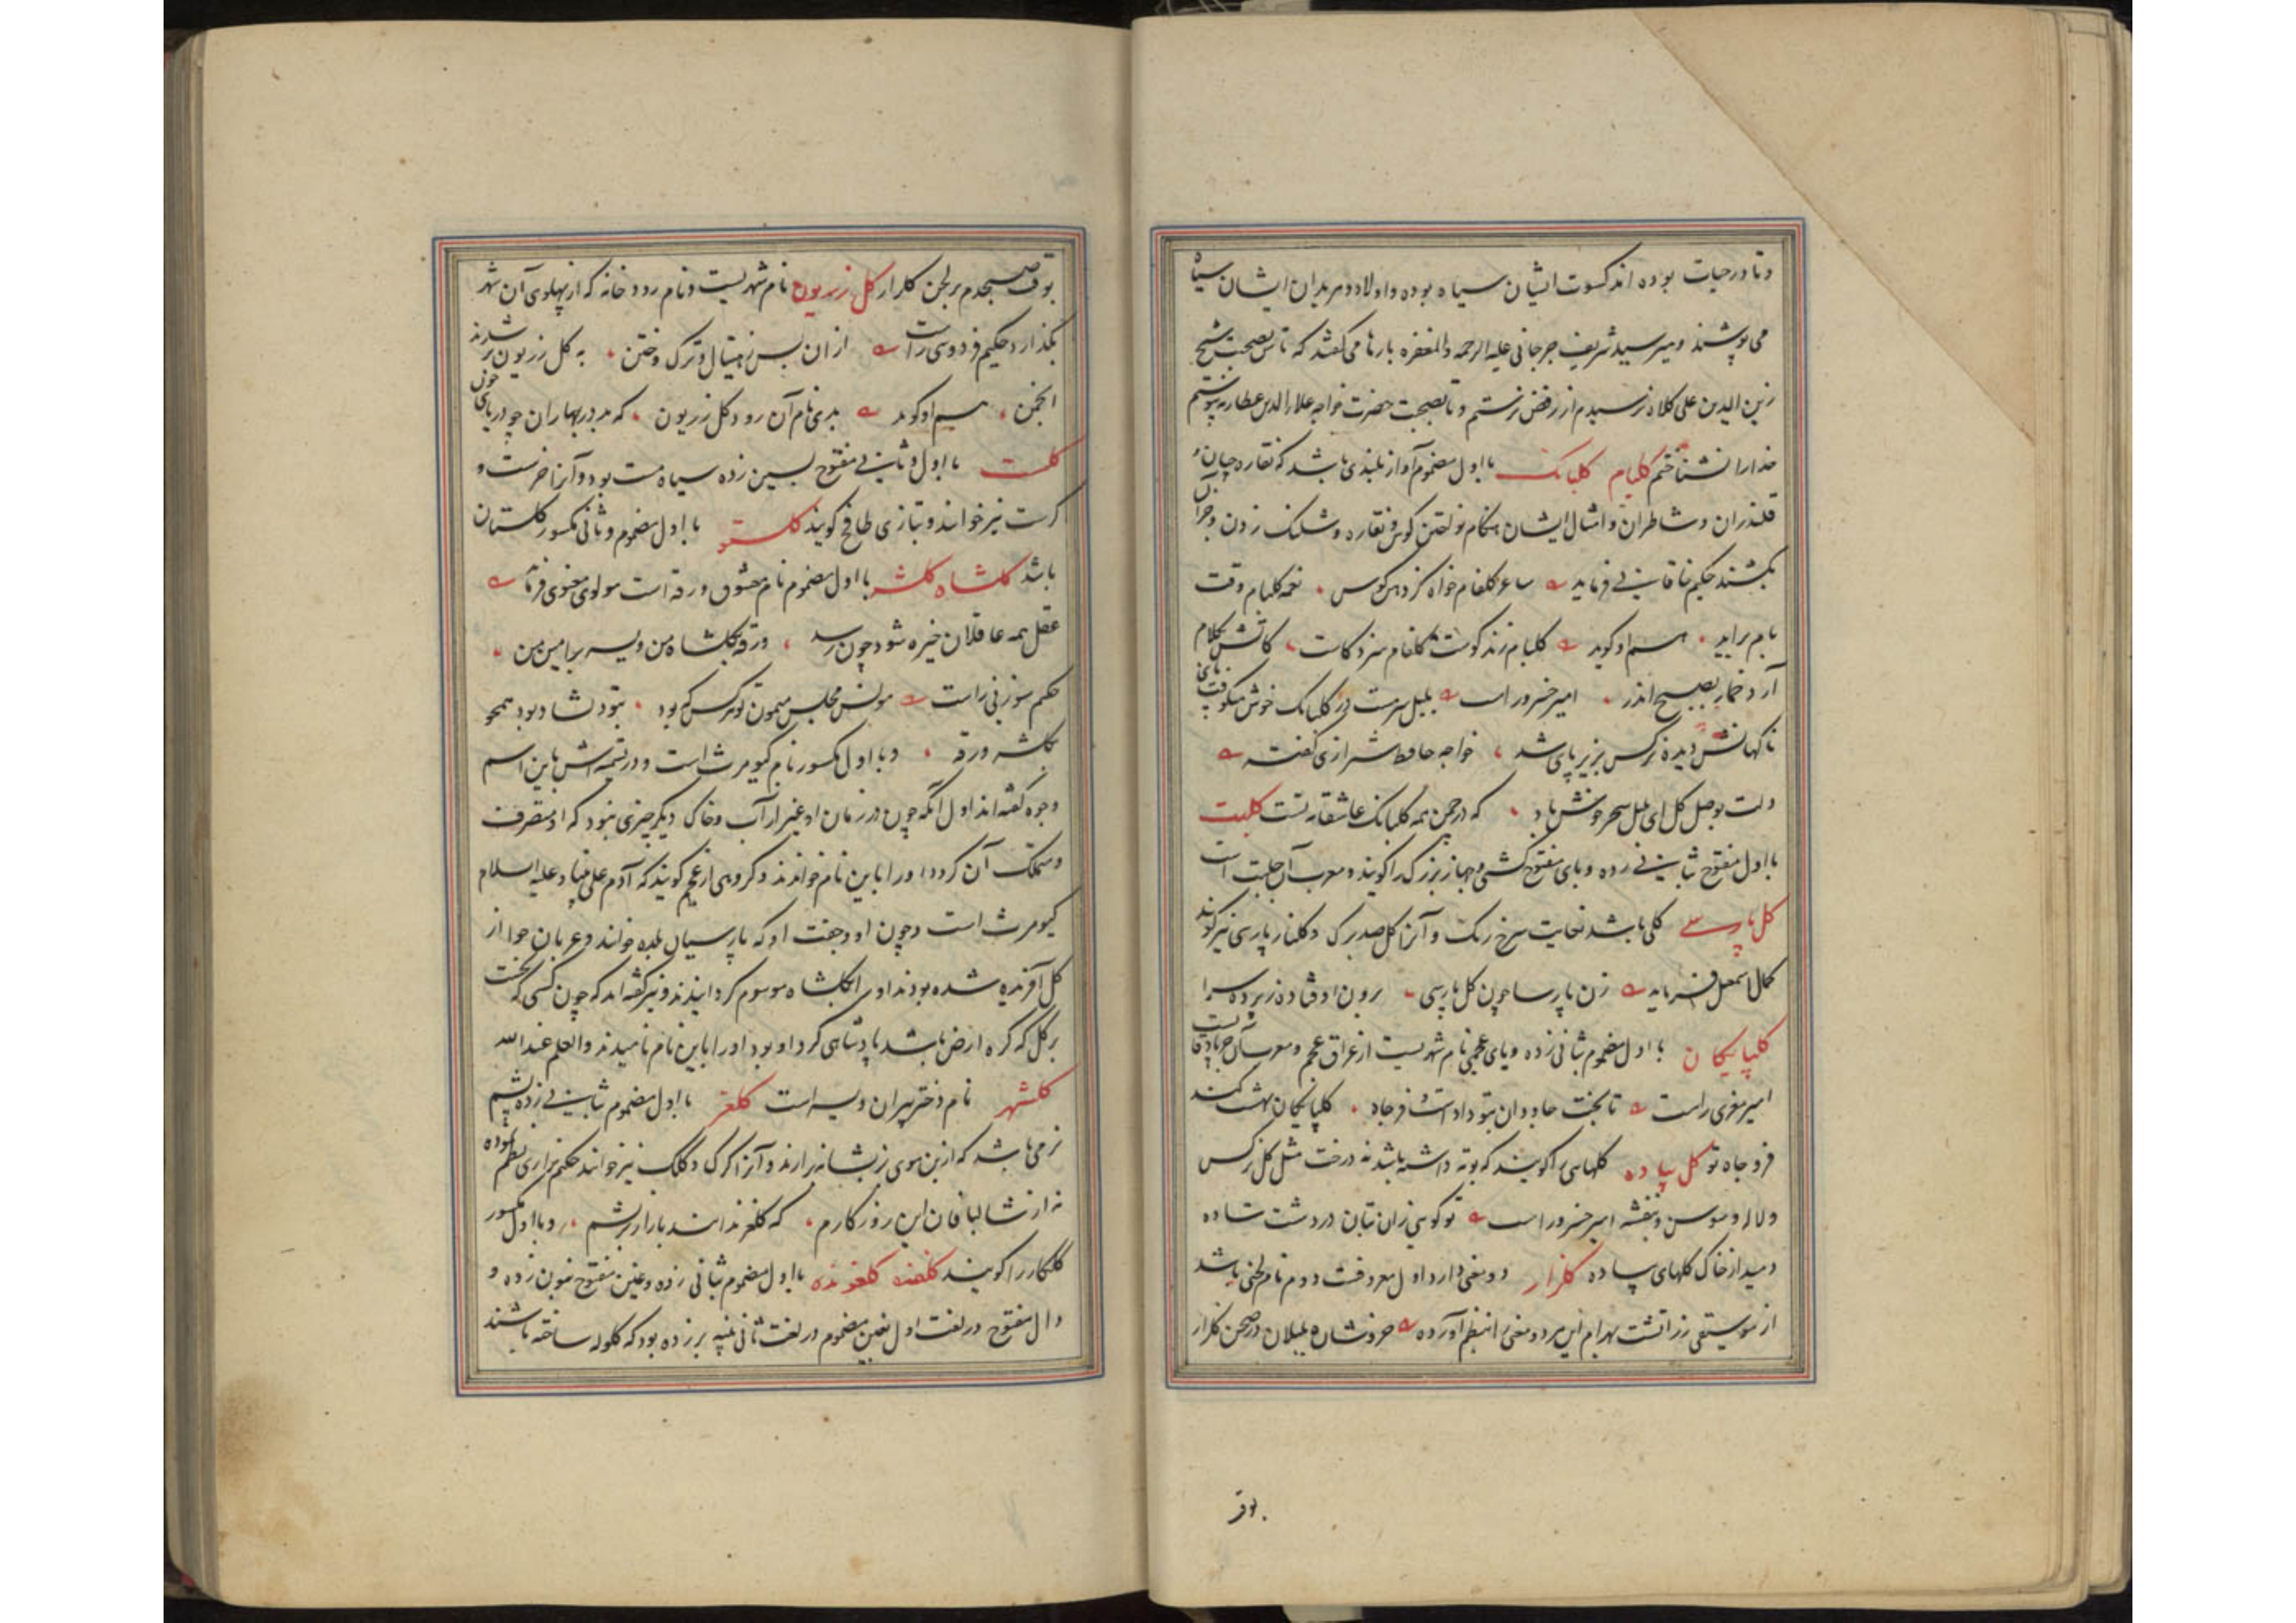 وتا در حیات بوده اند کسوت ایشان سیاه بوده و اولاد و مریدان ایشان سیاه
می پوشند و میر سید شریف جرجانی علیه الرحمه والمغفره بارها می گفتند که تا من بصحبت شیخ
زین الدین علی کلاه نرسیدم از رفض نرستم و تا بصحبت حضرت خواجه علاء الدین عطار نه پیوستم
خدا را نشناختم کلبام کلبانک با اول مضموم آواز بلندی باشد که نقاره چیان و
قلندران و شاطران و امثال ایشان هنگام نواختن کوس و نقاره و شلنک زدن و جز آن
بکشند حکیم خاقانی فرماید ساغر کلفام خواه کز دهن کوس نغمه کلبام وقت
بام برآید هم او کوید کلبام زند کوست کلفام
آرد خمار صبح اندر امیر خسرو راست بلبل سرمست در کلبانک خوش میکوفت پای
ناکهانش دیده نرکس بزیر پای شد خواجه حافظ شیرازی گفته
دلت بوصل کل ای بلبل سحر خوش باد که در چمن همه کلبانک عاشقانه تست کلبت
با اول مفتوح بثانی زده و بای مفتوح کشتی و جهاز بزرک را کویند و معرب آن جلبت است
کل پارسی کلی باشد بغایت سرخ رنک و آنرا کل صد برک و کلنار پارسی نیز کویند
کمال اسمعیل فرماید زن پارسا چون کل پارسی برون اوفتاده ز پرده سرا
کلپایکان با اول مضموم بثانی زده و یای عجمی نام شهریست از عراق عجم و معرب آن جرباذقان است
امیر معزی راست تا بخت جاودان بتو داد است فر و جاه کلپایکان بهشت کند
فر و جاه تو کل پیاده کلهایی را کویند که بوته داشته باشد نه درخت مثل کل نرکس
و لاله و سوسن و بنفشه امیر خسرو راست تو کویی زان بتان در دشت ساده
دمید از خاک کلهای پیاده کلزار دو معنی دارد اول معروفست دوم نام لحنی باشد
از موسیقی زراتشت بهرام این هر دو معنی را بنظم آورده خروشان بلبلان در صحن کلزار
بوق
بوق صبحدم بر لحن کلزار کل زریون نام شهریست و نام رودخانه که از پهلوی آن شهر
بکذارد حکیم فردوسی راست ازان پس ز هیتال و ترک و ختن به کل زریون بر شدند
انجمن هم او کوید بدی نام آن رود کل زریون که بد در بهاران چو دریای خون
کلست با اول و ثانی مفتوح بسین زده سیاه مست بود و آنرا خرست و
کرست نیز خوانند و بتازی طافح کویند کلستو با اول مضموم و ثانی مکسور کلستان
باشد کلشاه کلشه با اول مضموم نام معشوق ورقه است مولوی معنوی فرماید
عقل همه عاقلان خیره شود چون رسد ورقه بکلشاه من ویسه برامین من
حکیم سوزنی راست مونس مجلس میمون تو هر کس که بود بتو دلشاد بود همچو
بکلشه ورقه و با اول مکسور نام کیومرث است و در تسمیه اش باین اسم
وجوه گفته اند اول آنکه چون در زمان او غیر از آب و خاک دیکر چیزی نبود که او متصرف
و متملک آن کردد او را باین نام خواندند و کروهی از عجم کویند که آدم علی نبینا و علیه السلام
کیومرث است و چون او و جفت او که پارسیان بلده خوانند و عربان حوا از
کل آفریده شده بودند او را کلشاه موسوم کردانیدند و نیز گفته اند که چون کسی که نخست
بر کل که کره ارض باشد پادشاهی کرد او بود او را باین نام نامیدند والعلم عند الله
کلشهر نام دختر پیران ویسه است کلغر با اول مضموم بثانی زده پشم
نرمی باشد که از بن موی بز بشانه برآرند و آنرا کرک و کلک نیز خوانند حکیم نزاری نظم نموده
نه از شالبافان این روزگارم که کلغر ندانند باز از بریشم و با اول مکسور
کلکار را کویند کلغنده کلغونده با اول مضموم بثانی زده و غین مفتوح بنون زده و
دال مفتوح در لغت اول بغین مضموم در لغت ثانی پنبه بر زده بود که کلوله ساخته باشند